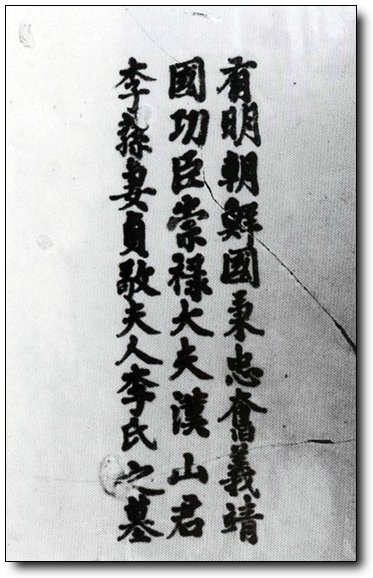 有明朝鮮國秉忠奮義靖
國功臣崇禄大夫漢山君
李蓀妻貞敬夫人李氏之墓